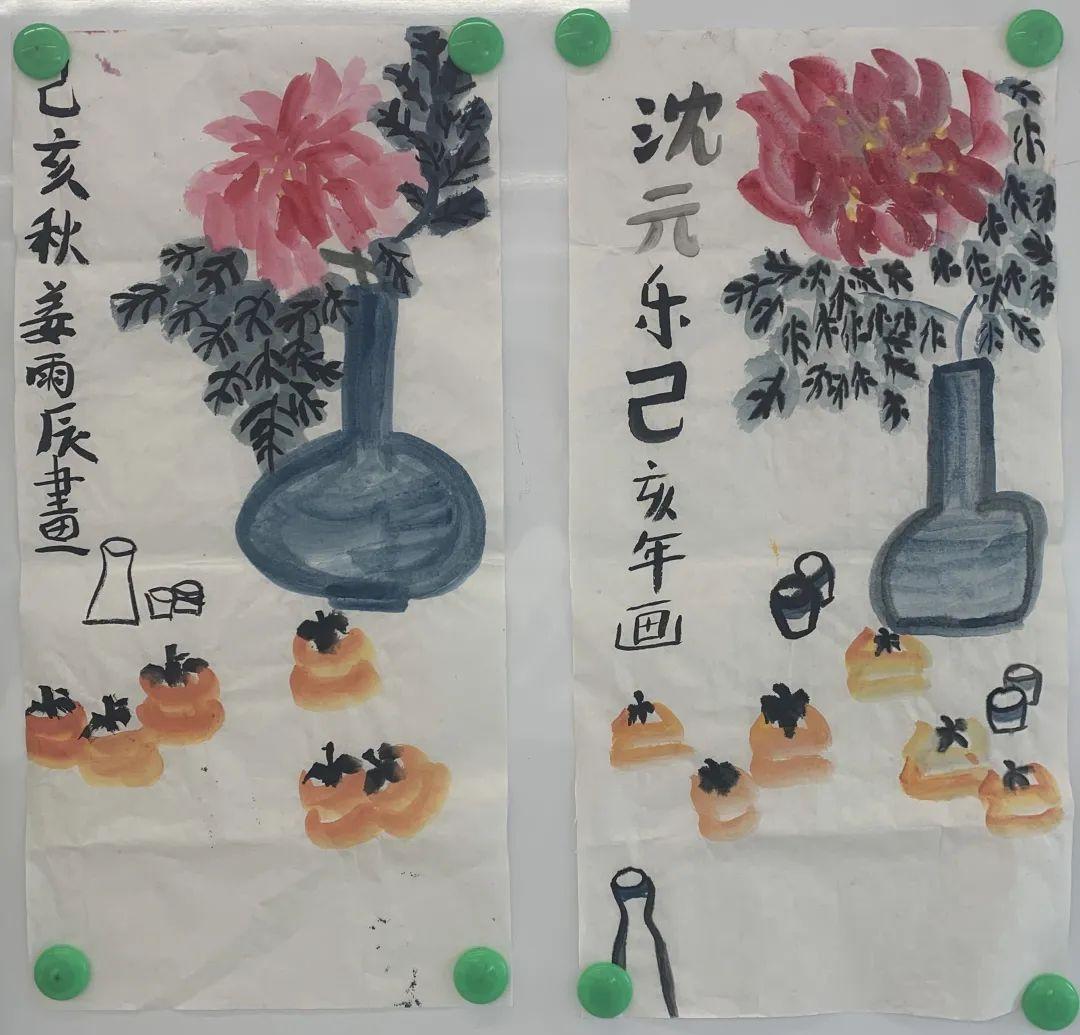 己亥秋姜雨辰畫
沈元乐己亥年画